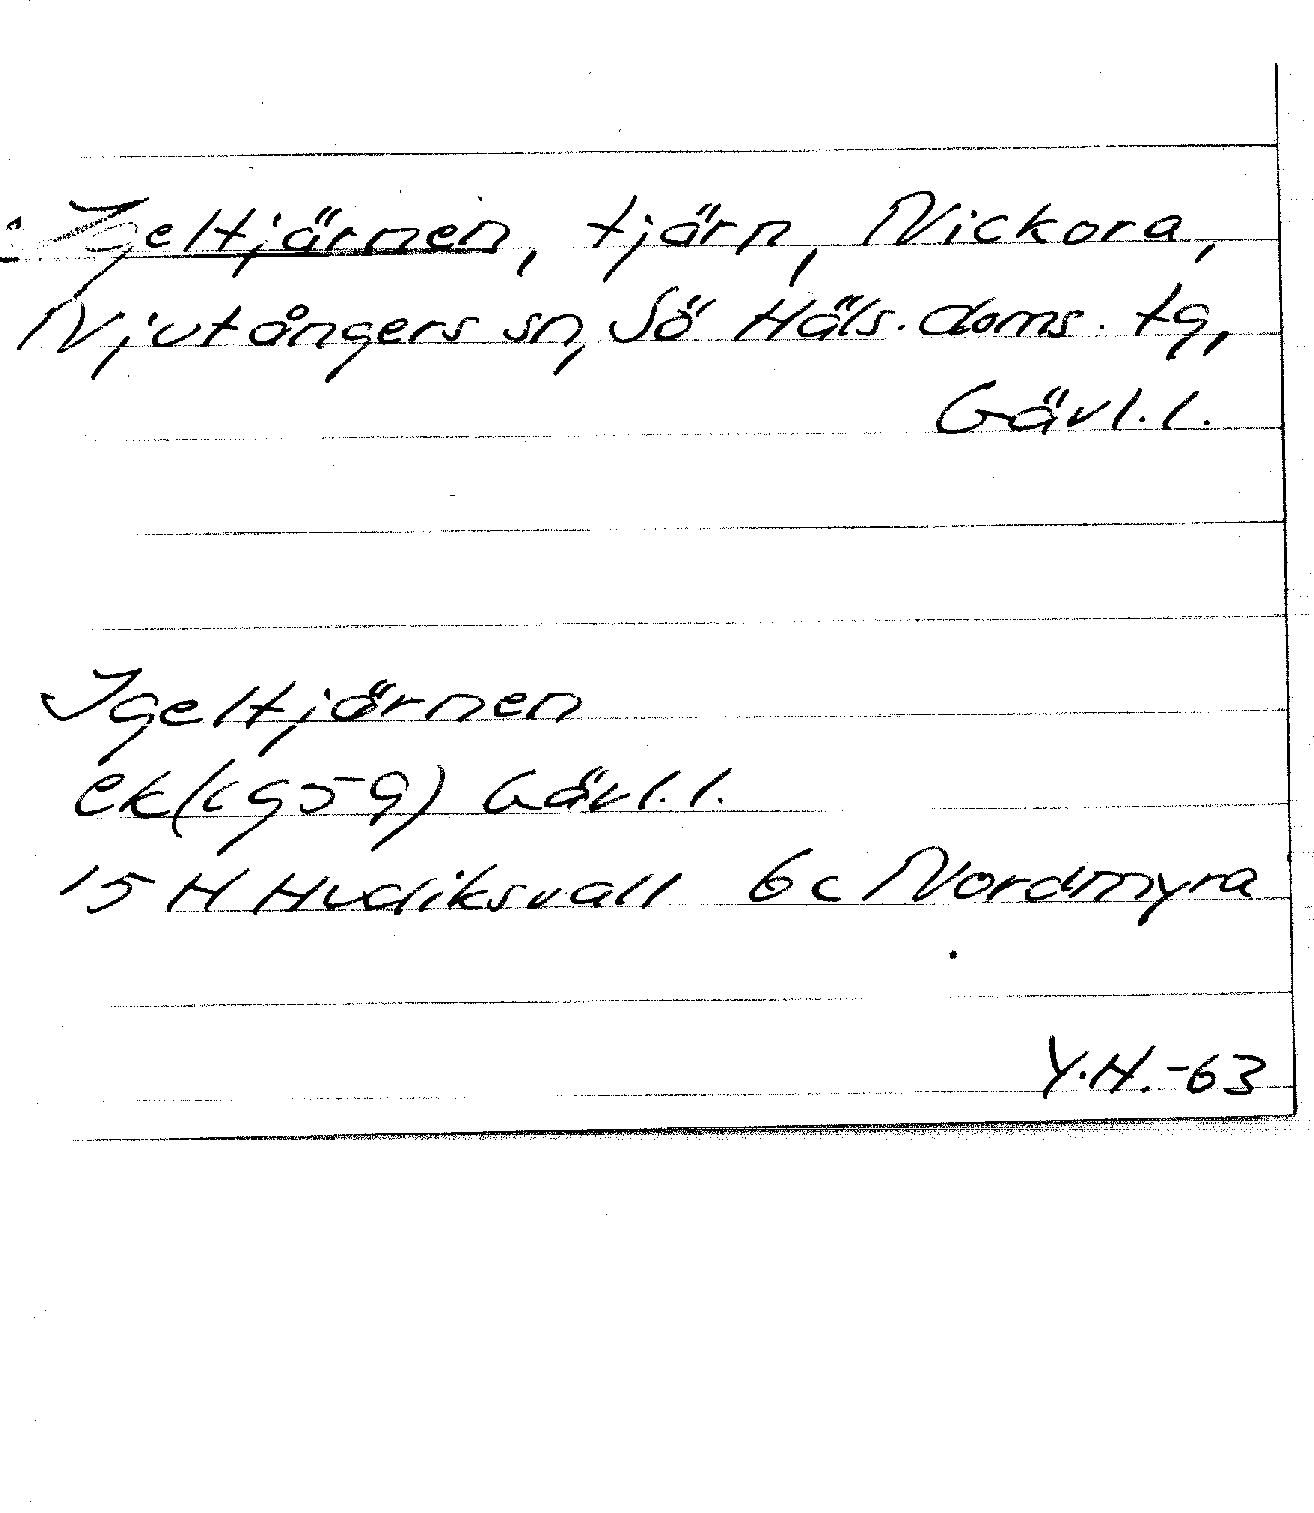 Igeltjärnen, tjärn, Nickora,
Njutångers sn, Sö Häls. doms. tg,
Gävl.l.
Igeltjärnen
ek(c959) Gävl.l.
15 H Hudiksvall 6c Nordmyra
Y.H.-63